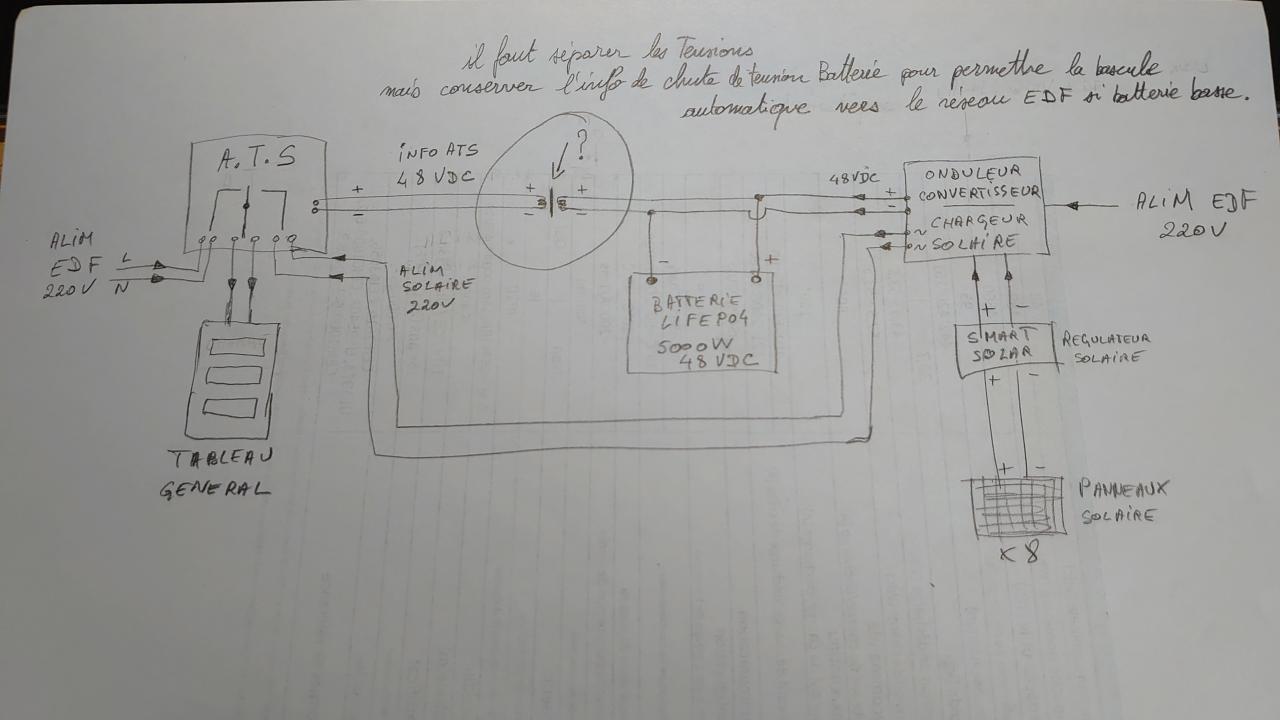 il faut séparer les Tensions
mais conserver l'info de chute de tension Batterie pour permettre la bascule
automatique vers le réseau EDF si batterie basse.
A.T.S
INFO ATS
48 VDC
+
-
?
+
-
+
-
48VDC
+
-
ONDULEUR
CONVERTISSEUR
CHARGEUR
SOLAIRE
~
~
ALIM EDF
220V
ALIM
EDF
220V
L
N
ALIM
SOLAIRE
220V
-
+
BATTERIE
LIFEPO4
5000W
48 VDC
+
-
SMART
SOLAR
REGULATEUR
SOLAIRE
+
-
+
-
TABLEAU
GENERAL
PANNEAUX
SOLAIRE
x 8